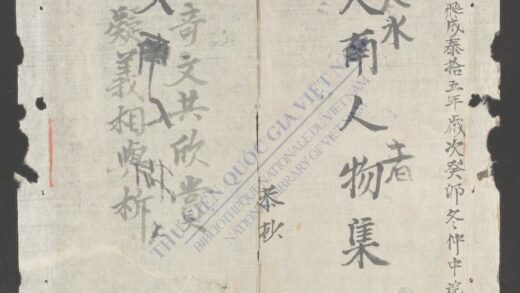 成泰拾五年歲次癸卯冬仲中浣
水
者
南人物集
恭抄
奇文共欣賞
疑義相與析
THƯ VIỆN QUỐC GIA VIỆT NAM
BIBLIOTHÈQUE NATIONALE DU VIETNAM
NATIONAL LIBRARY OF VIETNAM